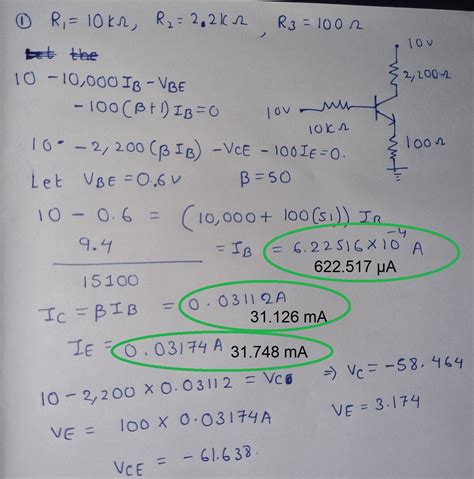 ① R1 = 10kΩ, R2 = 2.2kΩ, R3 = 100Ω
Let the
10 - 10,000 IB - VBE
- 100(β+1) IB = 0
10v
2,200Ω
10v
10kΩ
100Ω
10 - 2,200 (β IB) - VCE - 100 IE = 0.
Let VBE = 0.6v β = 50
10 - 0.6 = (10,000 + 100(51)) IB
9.4 / 15100 = IB = 6.22516 × 10^-4 A
622.517 µA
IC = βIB = 0.03112A
31.126 mA
IE = 0.03174A 31.748 mA
10 - 2,200 × 0.03112 = VC ⇒ VC = -58.464
VE = 100 × 0.03174A VE = 3.174
VCE = -61.638.